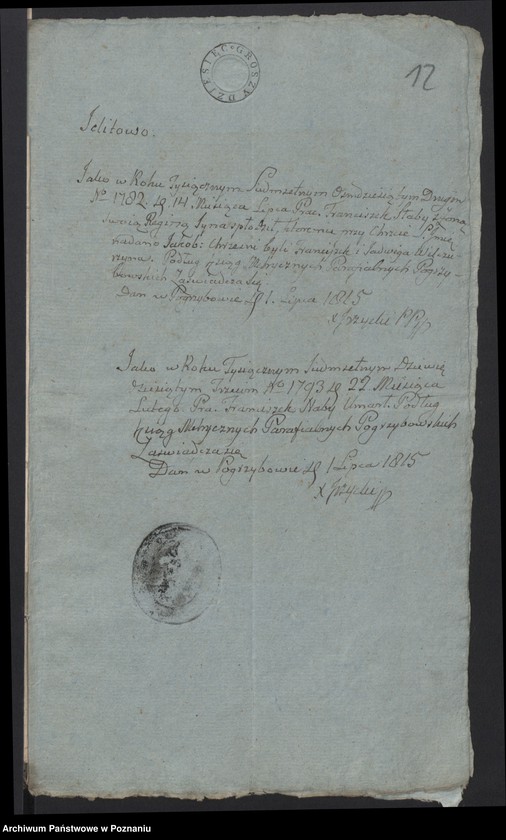 DZIESIĘĆ GROSZY
12
Jelitowo.
Jako w Roku Tysiącznym Siedmsetnym Osmdziesiątym Drugim
No 1782. d. 14. Miesiąca Lipca Prac. Franciszek Słaby z żoną
swoią Reginą syna spłodził, któremu przy Chrzcie S. Imie
nadano Jakób: Chrzesni byli Franciszek i Jadwiga
Podług Xsiąg Metrycznych Parafialnych Pogrzy-
bowskich Zaświadcza się
Dan w Pogrzybowie d 1. Lipca 1815
X
Jako w Roku Tysiącznym Siedmsetnym Dziewię
dziesiątym Trzecim No 1793 d 22 Miesiąca
Lutego Pra. Franciszek Umarł. Podług
Xiąg Metrycznych Parafialnych Pogrzybowskich
Zaświadcza się
Dan w Pogrzybowie d 1 Lipca 1815
X
Archiwum Państwowe w Poznaniu